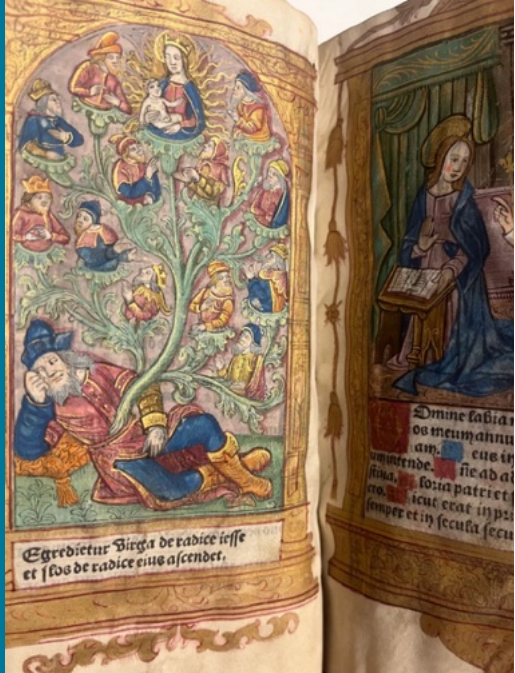 Egredietur Virga de radice iesse
et flos de radice eius ascendet.
Omine labia
os meum annu
am. eus in
intende. ne ad ad
stina. loria patri et f
cto. icut erat in pri
semper et in secula secu